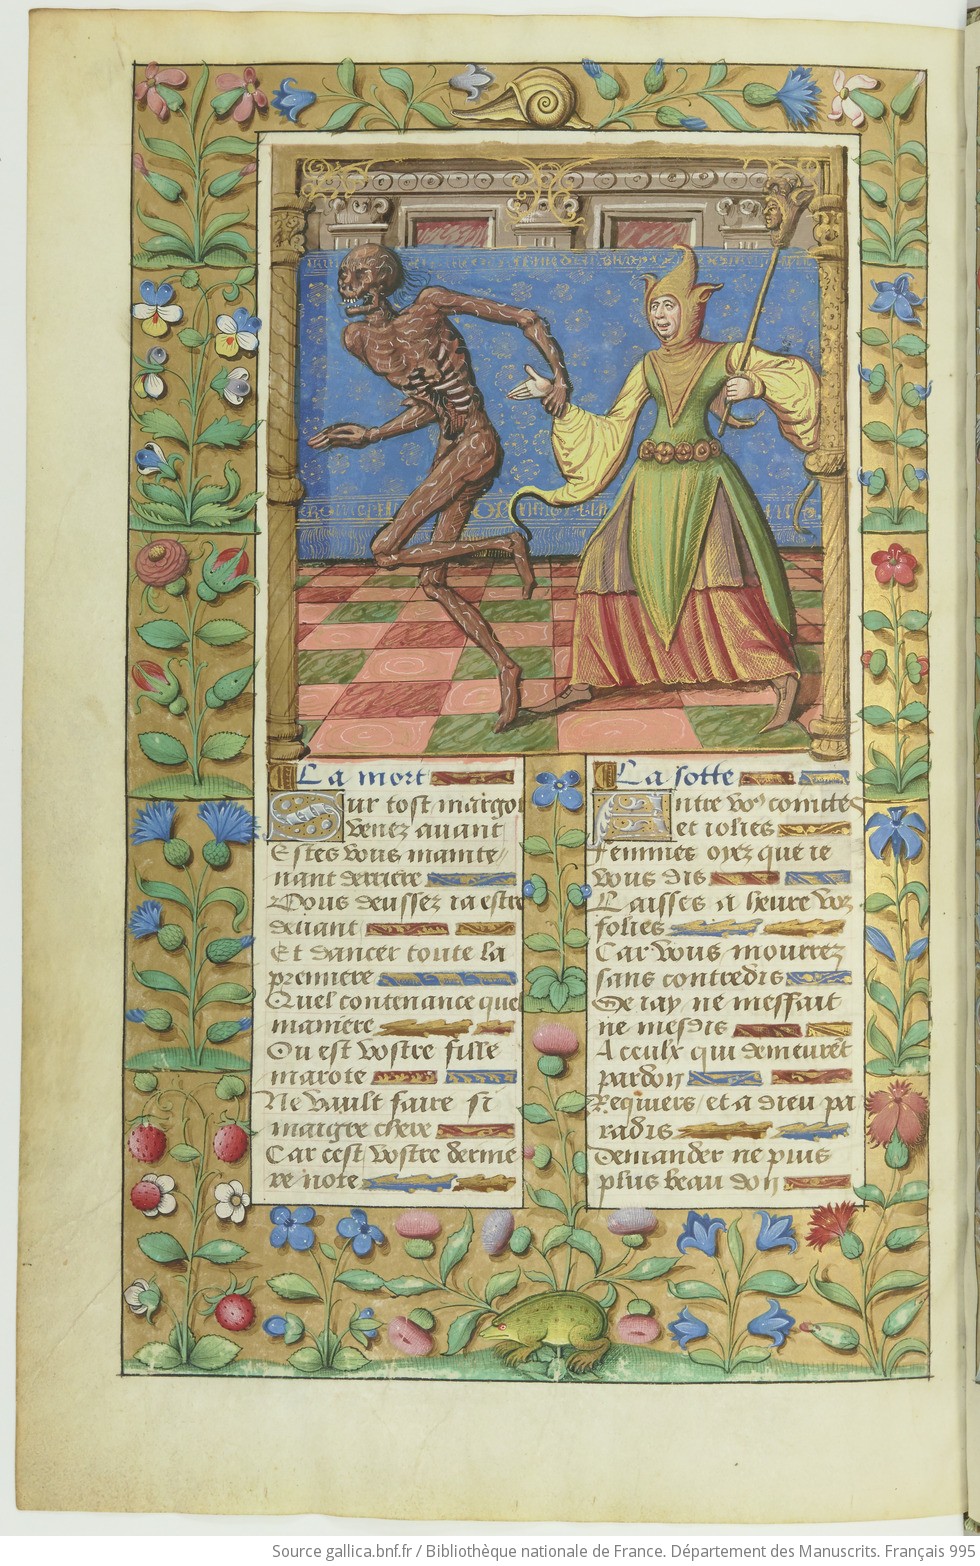 La mort
Sur tost margot
venez avant
Estes vous mainte/
nant derriere
Vous deussez ia estre
devant
Et dancer toute la
premiere
Quel contenance quel
maniere
Ou est vostre fille
marote
Ne vault faire si
maigre chere
Car cest vostre dernie
re note
La sotte
Entre voꝰ cointes
et iolies
Femmes oyez que ie
vous dis
Laisses a heure voz
folies
Car vous mourrez
sans contredis
Se iay ne meffait
ne mesdis
A ceulx qui demeurẽt
pardon
Requiers et a dieu pa
radis
Demander ne puis
plus beau don
Source gallica.bnf.fr / Bibliothèque nationale de France. Département des Manuscrits. Français 995